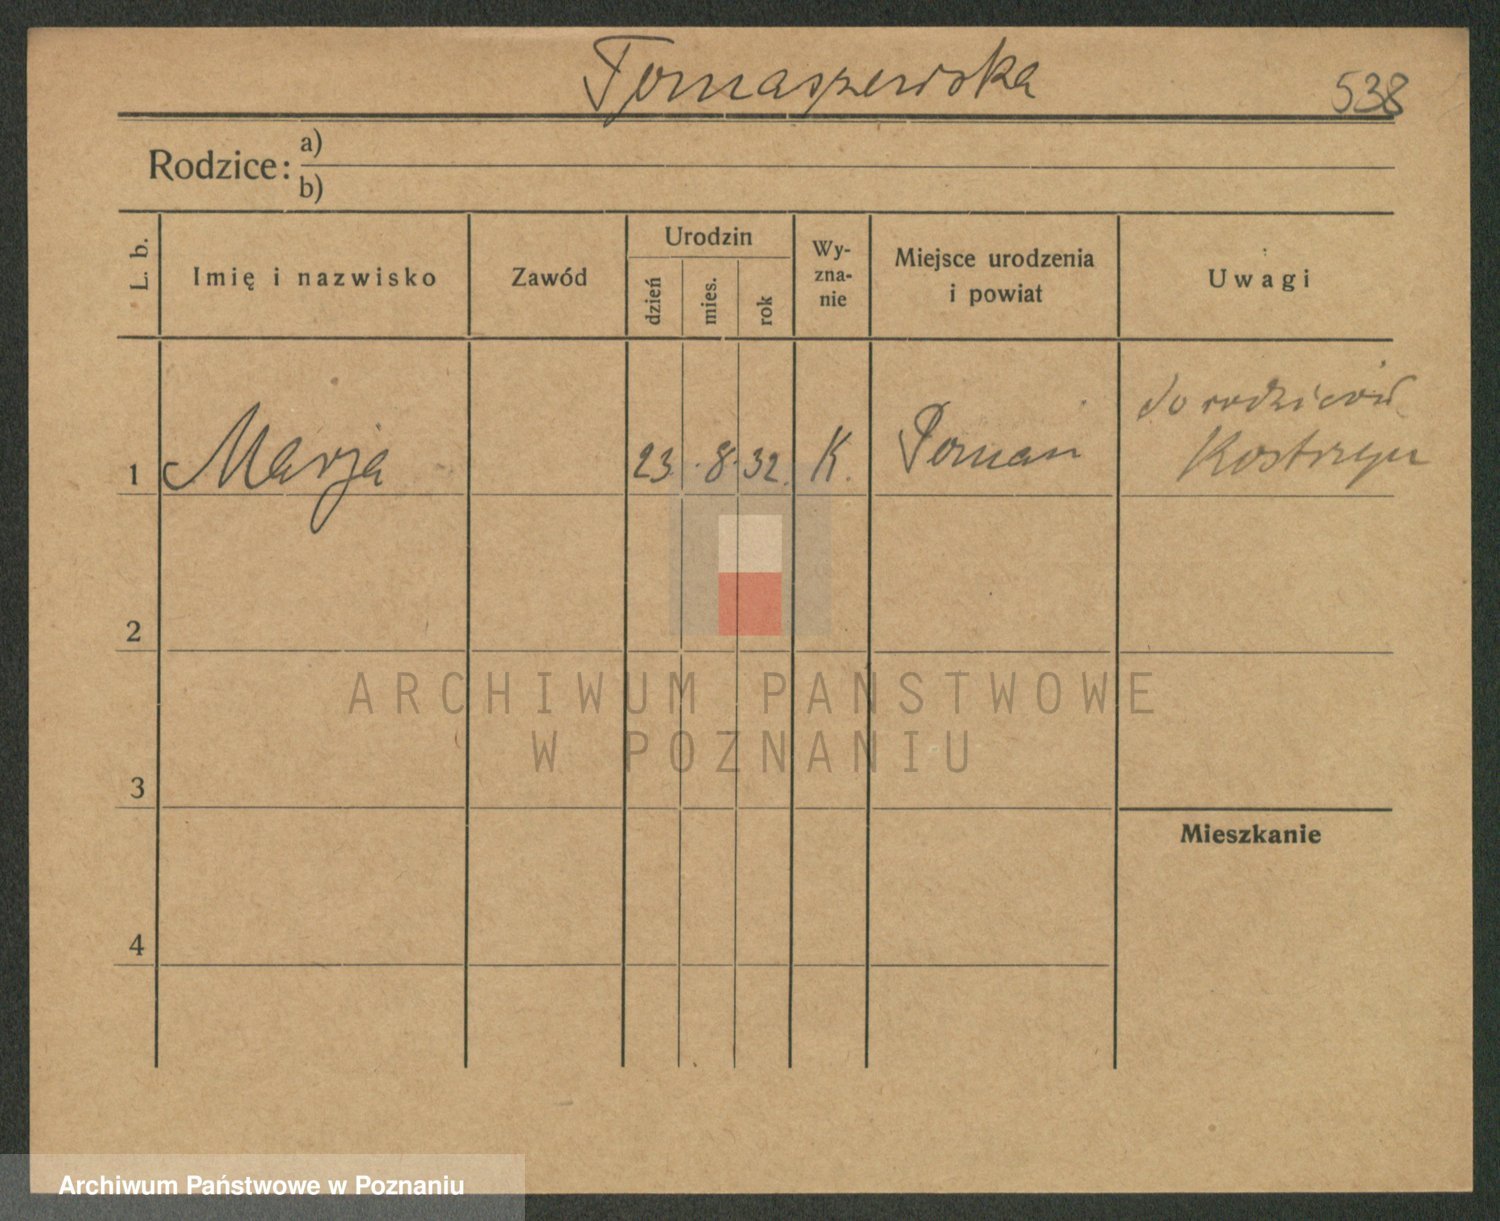 Tomaszewska 538
Rodzice: a)
b)
L. b.
Imię i nazwisko
Zawód
Urodzin
dzień
mies.
rok
Wy-
zna-
nie
Miejsce urodzenia
i powiat
Uwagi
do rodziców
Kostrzyn
1 Marja 23. 8. 32. K. Poznań
2
3
4
Mieszkanie
ARCHIWUM PAŃSTWOWE
W POZNANIU
Archiwum Państwowe w Poznaniu